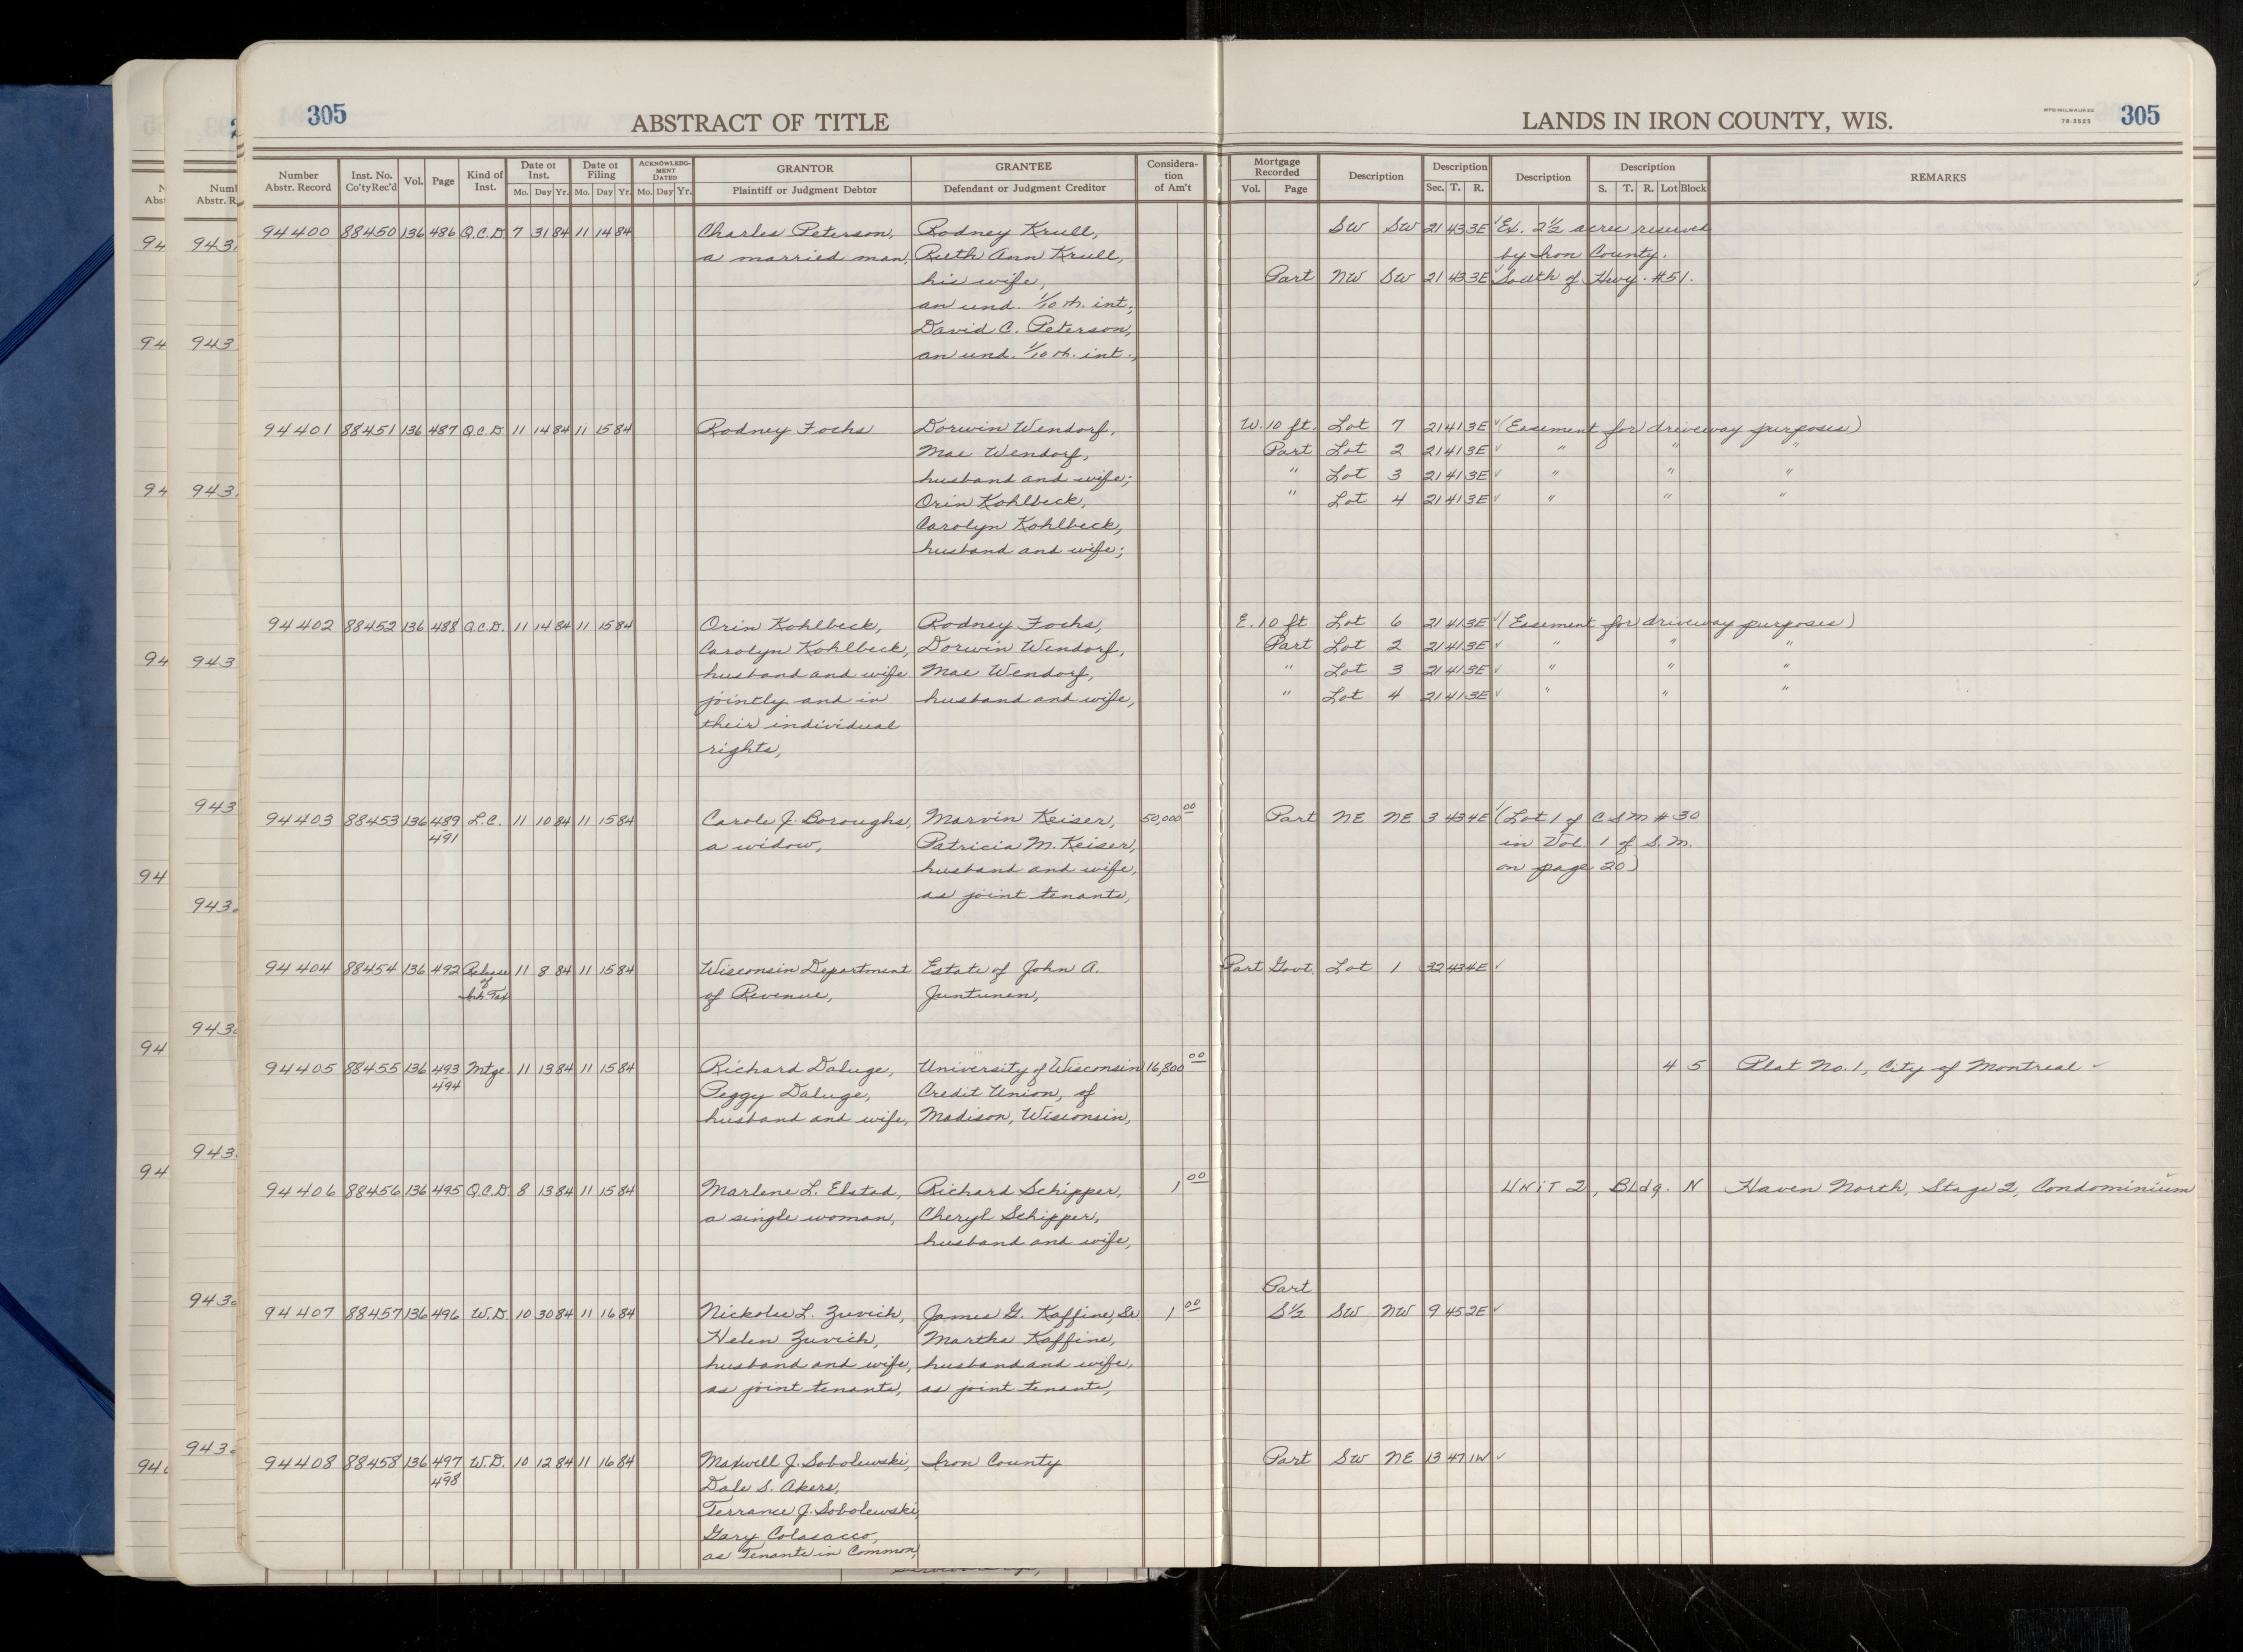 305 ABSTRACT OF TITLE
LANDS IN IRON COUNTY, WIS. WPB-MILWAUKEE 78-3525 305
Number Abstr. Record | Inst. No. Co'ty Rec'd | Vol. | Page | Kind of Inst. | Date of Inst. Mo. Day Yr. | Date of Filing Mo. Day Yr. | ACKNOWLEDGMENT DATED Mo. Day Yr. | GRANTOR Plaintiff or Judgment Debtor | GRANTEE Defendant or Judgment Creditor | Consideration of Am't | Mortgage Recorded Vol. Page | Description | Description Sec. T. R. | Description | Description S. T. R. Lot Block | REMARKS
94400 88450 136 486 Q.C.D. 7 31 84 11 14 84 Charles Peterson, Rodney Krull, SW SW 21 43 3E Ex. 2½ acres reserved
a married man, Ruth Ann Krull, by Iron County.
his wife, Part NW SW 21 43 3E South of Hwy. #51.
an und. 1/10 th. int;
David C. Peterson,
an und. 1/10 th. int.,
94401 88451 136 487 Q.C.D. 11 14 84 11 15 84 Rodney Fochs Dorwin Wendorf, W. 10 ft. Lot 7 21 41 3E (Easement for driveway purposes)
Mae Wendorf, Part Lot 2 21 41 3E " " "
husband and wife; " Lot 3 21 41 3E " " "
Orin Kohlbeck, " Lot 4 21 41 3E " " "
Carolyn Kohlbeck,
husband and wife;
94402 88452 136 488 Q.C.D. 11 14 84 11 15 84 Orin Kohlbeck, Rodney Fochs, E. 10 ft Lot 6 21 41 3E (Easement for driveway purposes)
Carolyn Kohlbeck, Dorwin Wendorf, Part Lot 2 21 41 3E " " "
husband and wife Mae Wendorf, " Lot 3 21 41 3E " " "
jointly and in husband and wife, " Lot 4 21 41 3E " " "
their individual
rights,
94403 88453 136 489-491 L.C. 11 10 84 11 15 84 Carole J. Boroughs, Marvin Keiser, 50,000 00 Part NE NE 3 43 4E (Lot 1 of C S M # 30
a widow, Patricia M. Keiser, in Vol. 1 of S. M.
husband and wife, on page 20)
as joint tenants,
94404 88454 136 492 Release of Inh. Tax 11 8 84 11 15 84 Wisconsin Department Estate of John A. Part Govt. Lot 1 32 43 4E
of Revenue, Juntunen,
94405 88455 136 493-494 Mtge. 11 13 84 11 15 84 Richard Daluge, University of Wisconsin 16,800 00 4 5 Plat No. 1, City of Montreal
Peggy Daluge, Credit Union, of
husband and wife, Madison, Wisconsin,
94406 88456 136 495 Q.C.D. 8 13 84 11 15 84 Marlene L. Elstad, Richard Schipper, 1 00 UNIT 2, Bldg. N Haven North, Stage 2, Condominium
a single woman, Cheryl Schipper,
husband and wife,
Part
94407 88457 136 496 W.D. 10 30 84 11 16 84 Nickolee L. Zuvich, James G. Kaffine, Sr. 1 00 S½ SW NW 9 45 2E
Helen Zuvich, Martha Kaffine,
husband and wife, husband and wife,
as joint tenants, as joint tenants,
94408 88458 136 497-498 W.D. 10 12 84 11 16 84 Maxwell J. Sobolewski, Iron County Part SW NE 13 47 1W
Dale S. Akers,
Terrance J. Sobolewski,
Gary Colasacco,
as Tenants in Common,